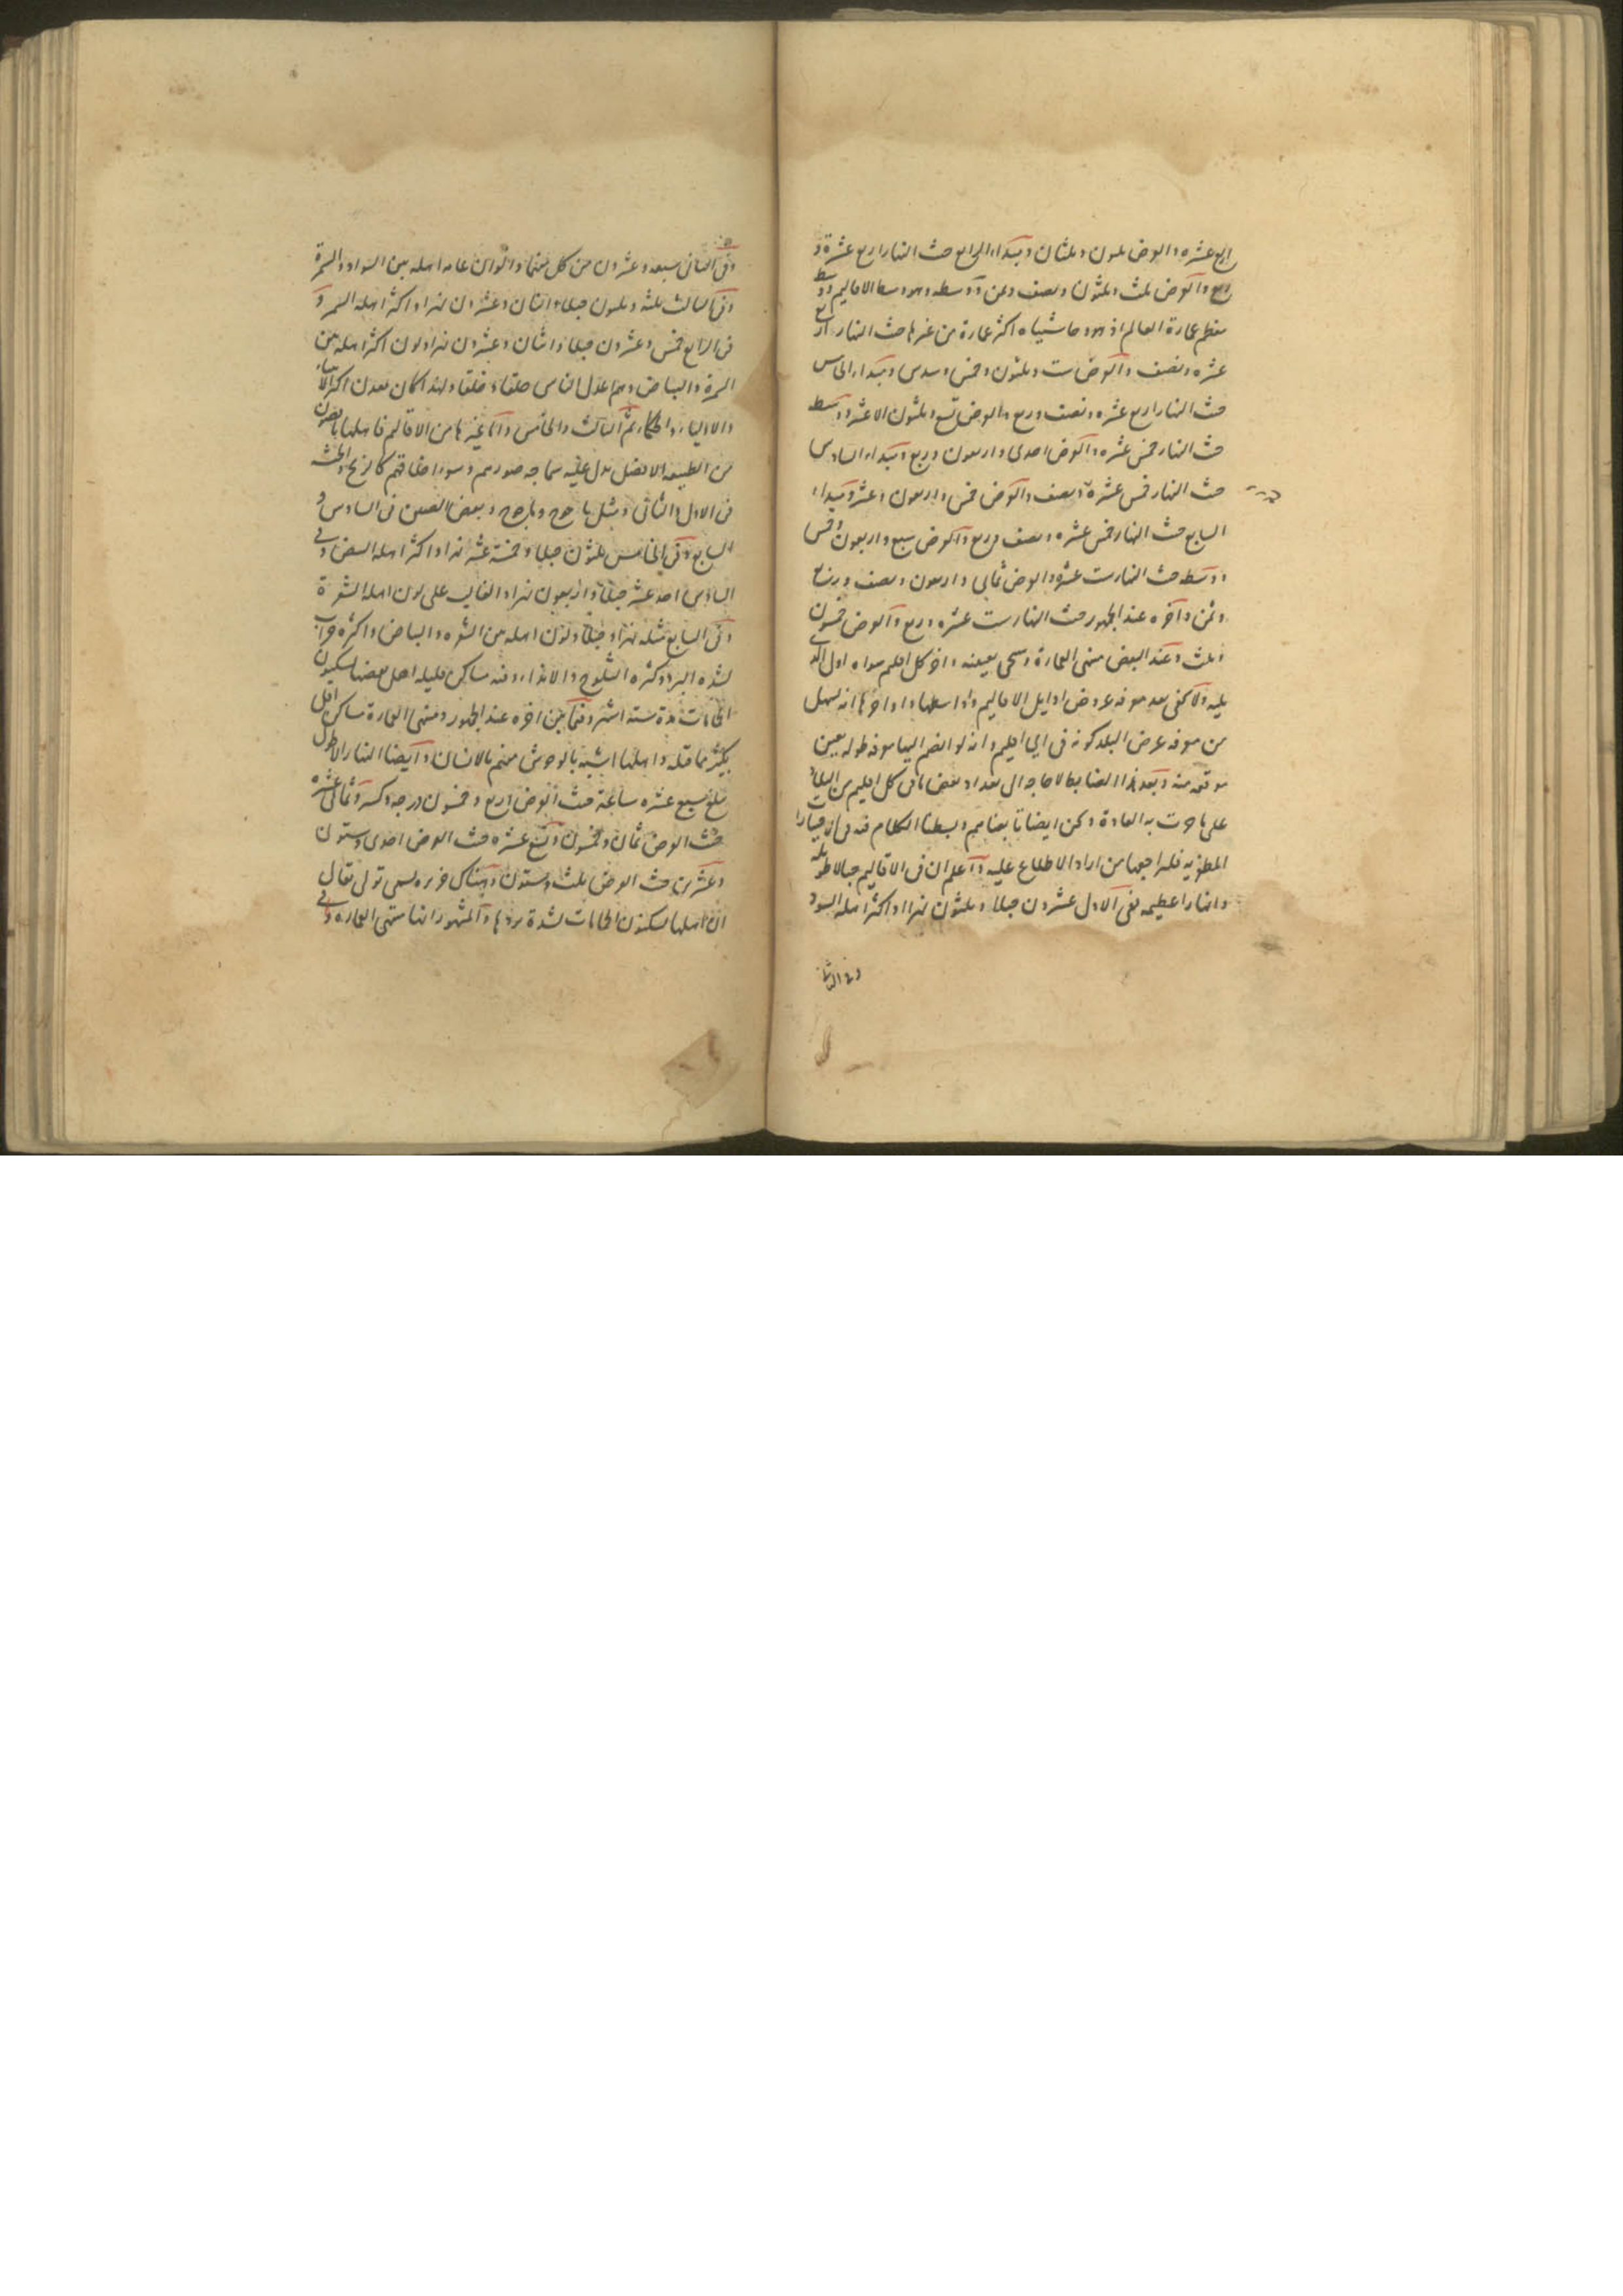 اربع عشره والعرض ثلثون وثلثان ومبداء الرابع حيث النهار اربع عشرة و
ربع والعرض ثلث وثلثون ونصف وثمن ووسطه وهو وسط الاقاليم ووسط
معظم عمارة العالم اذ هو وحاشيتاه اكثر عمارة من غيرها حيث النهار اربع
عشره ونصف والعرض ست وثلثون وخمس وسدس ومبداء الخامس
حيث النهار اربع عشره ونصف وربع والعرض تسع وثلثون الا عشر ووسطه
حيث النهار خمس عشره والعرض احدى واربعون وربع ومبداء السادس
حيث النهار خمس عشرة وربع والعرض ثلث واربعون
حيث النهار خمس عشرة ونصف والعرض خمس واربعون وعشر ومبداء
السابع حيث النهار خمس عشره ونصف وربع والعرض سبع واربعون وخمس
ووسطه حيث النهار ست عشرة والعرض ثمانى واربعون ونصف وربع
وثمن وآخره عند الجمهور حيث النهار ست عشره وربع والعرض خمسون
وثلث وعند البعض منتهى العمارة وسيجى بعينه واخر كل اقليم سواه اول الذى
يليه ولا يخفى بعد معرفه عروض اوايل الاقاليم واواسطها واواخرها انه يسهل
من معرفه عرض البلد كونه فى اى اقليم وانه لو انضم اليها معرفه طوله يعين
موقعه منه وبعد هذا الضابط لا حاجه الى تعداد بعض ما فى كل اقليم من البلاد
على ما جرت به العادة ولكن ايضا تابعناهم وبسطنا الكلام فيه فى اختيارات
المظفريه فليراجعها من اراد الاطلاع عليه واعلم ان فى الاقاليم جبالا طويله
وانهارا عظيمه ففى الاول عشرون جبلا وثلثون نهرا واكثر اهله السود
وفى الثانى
وفى الثانى سبعه وعشرون من كل منهما والوان عامه اهله بين السواد والسمرة
وفى الثالث ثلثه وثلثون جبلا واثنان وعشرون نهرا واكثر اهله السمر و
فى الرابع خمس وعشرون جبلا واثنان وعشرون نهرا ولون اكثر اهله بين
السمرة والبياض وهم اعدل الناس خلقا وخلقا ولهذا كان معدن اكثر الانبياء
والاولياء والحكماء ثم الثالث والخامس واما غيرها من الاقاليم فاهلها ناقصون
من الطبيعه الافضل يدل عليه سماجه صورهم وسوء اخلاقهم كالزنج والحبشه
فى الاول والثانى ومثل ياجوج وماجوج وبعض الصين فى السادس و
السابع وفى الخامس ثلثون جبلا وخمسة عشر نهرا واكثر اهله البيض وفى
السادس احد عشر جبلا واربعون نهرا والغالب على لون اهله الشقرة
وفى السابع مثله نهرا وجبلا ولون اهله بين الشقره والبياض واكثره خراب
لشده البرد وكثره الثلوج والانداء وفيه مساكن قليله اهل بعضها يسكنون
الحمامات مدة سته اشهر وفيما بين اخره عند الجمهور ومنتهى العمارة مساكن اقل
بكثير مما قبله واهلها اشبه بالوحوش منهم بالانسان وايضا النهار الاطول
يبلغ سبع عشره ساعة حيث العرض اربع وخمسون درجه وكسر وثمانى عشره
حيث العرض ثمان وخمسون وتسع عشره حيث العرض احدى وستون
وعشرين حيث العرض ثلث وستون وهناك جزيره يسمى تولى يقال
ان اهلها يسكنون الحمامات لشدة بردها والمشهور انها منتهى العماره وفى